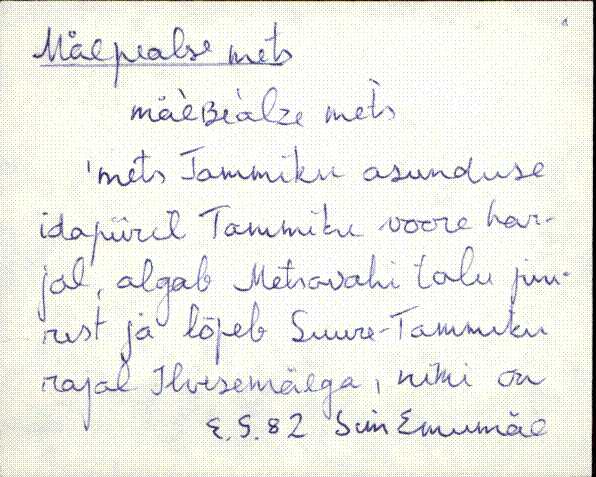 Mäepealse mets
mäèʙèalze metś
'mets Tammiku asunduse
idapiiril Tammiku voore har-
jal, algab Metsavahi talu juu-
rest ja lõpeb Suure-Tammiku
rajal Ilvesemäega, nimi on
E.S.82 Siin Emumäe